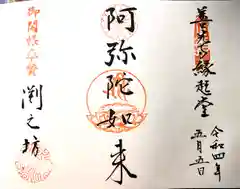 善光寺縁起堂
令和四年
五月五日
阿弥陀如来
御開帳奉賛
渕之坊